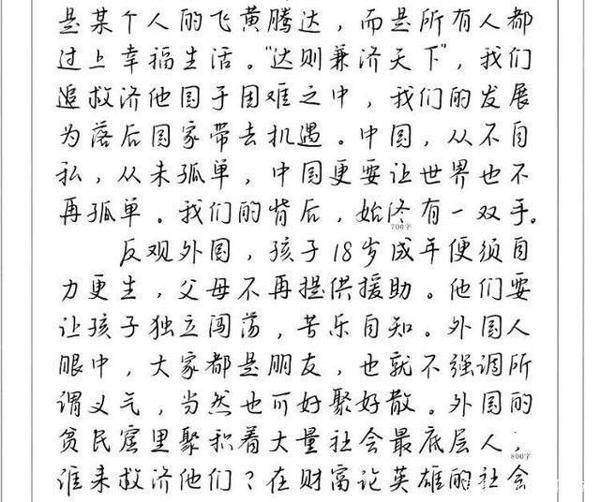 是某个人的飞黄腾达，而是所有人都
过上幸福生活。“达则兼济天下”，我们
追救济他国于困难之中，我们的发展
为落后国家带去机遇。中国，从不自
私，从未孤单，中国更要让世界也不
再孤单。我们的背后，始终有一双手。
700字
反观外国，孩子18岁成年便须自
力更生，父母不再提供援助。他们要
让孩子独立闯荡，苦乐自知。外国人
眼中，大家都是朋友，也就不强调所
谓义气，当然也可好聚好散。外国的
贫民窟里聚积着大量社会最底层人；
800字
谁来救济他们？在财富论英雄的社会